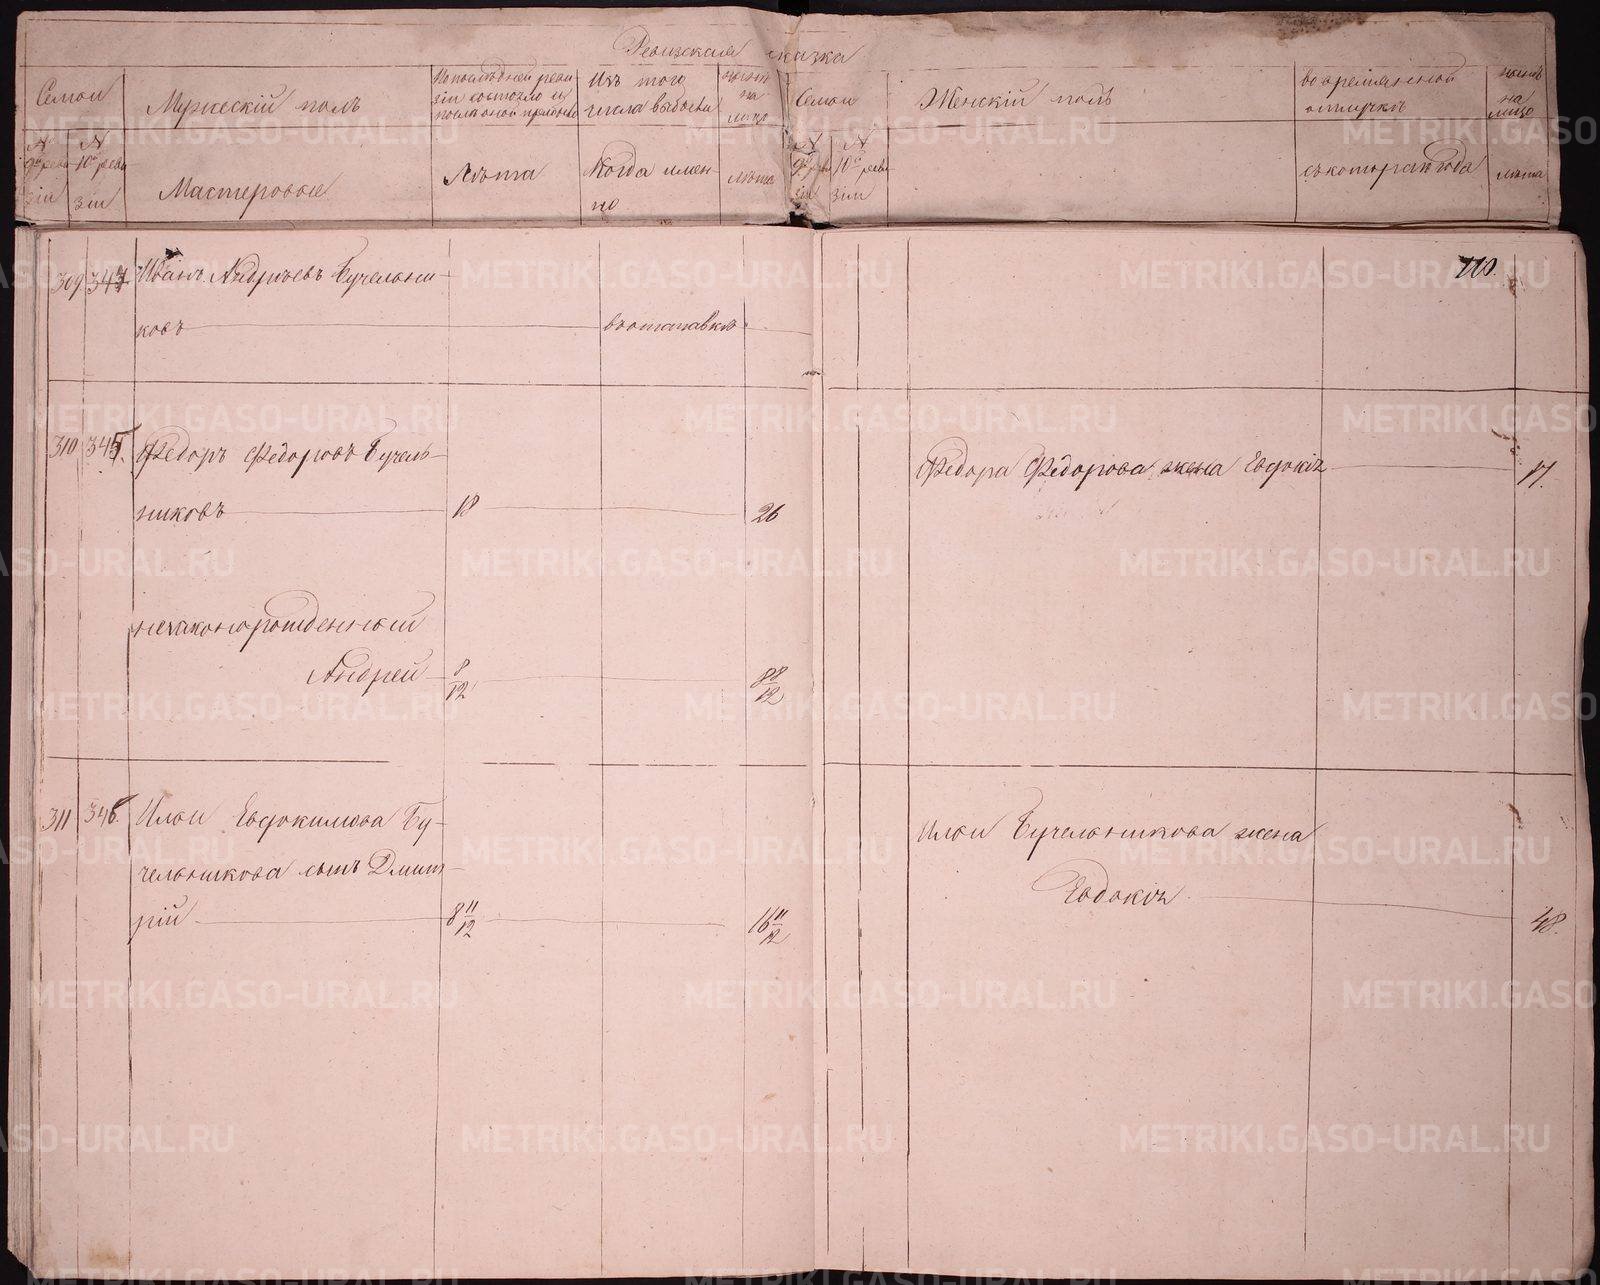 Ревизская сказка
Семьи
Мужескій полъ
По последней реви
зіи состояло и
Изъ того
числа выбыло
ныне
на
лицо
Семьи
Женскій полъ
во временной
отлучкѣ
ныне
на
лицо
№
9й реви
зіи
№
10й реви
зіи
Мастеровые
Лѣта
Когда имен-
но
лѣта
№
9й реви
зіи
№
10й реви
зіи
съ котораго года
лѣта
309
Иванъ Андреевъ Бучельни-
ковъ
въ отставкѣ
110.
310 345
Федоръ Федоровъ Бучель-
никовъ 18 26
Федора Федорова жена Евдокія 17.
незаконорожденный
Андрей 8/12 8 8/12
311 346
Ильи Евдокимова Бу-
чельникова сынъ Дмит-
рій 8 11/12 16 11/12
Ильи Бучельникова жена
Евдокія 48.
METRIKI.GASO-URAL.RU